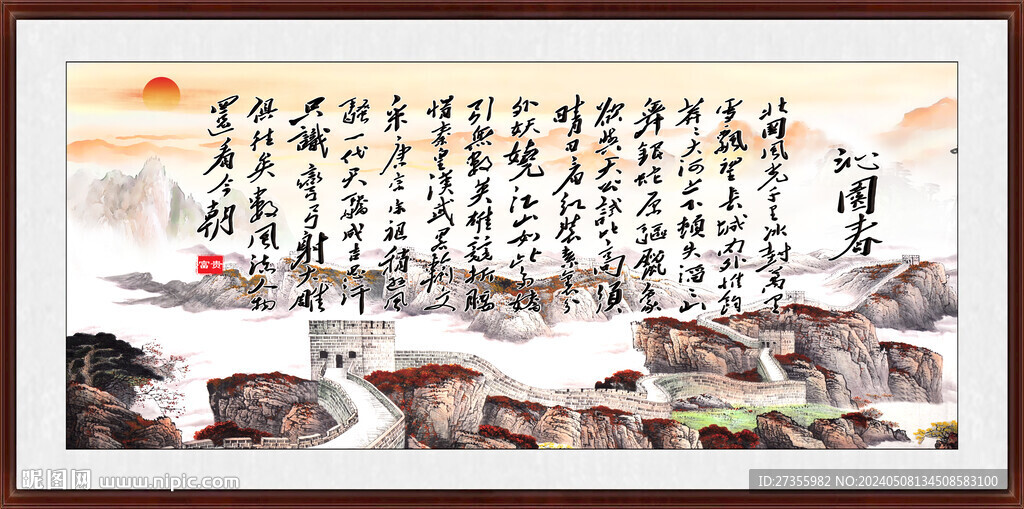 沁園春
北國風光千里冰封萬里
雪飄望長城內外惟餘
莽々大河上下頓失滔々山
舞銀蛇原馳蠟象
欲與天公試比高須
晴日看紅裝素裹分
外妖嬈江山如此多嬌
引無數英雄競折腰
惜秦皇漢武略輸文
采唐宗宋祖稍遜風
騷一代天驕成吉思汗
只識彎弓射大雕
俱往矣數風流人物
還看今朝
富贵
昵图网 www.nipic.com
ID:27355982 NO:20240508134508583100